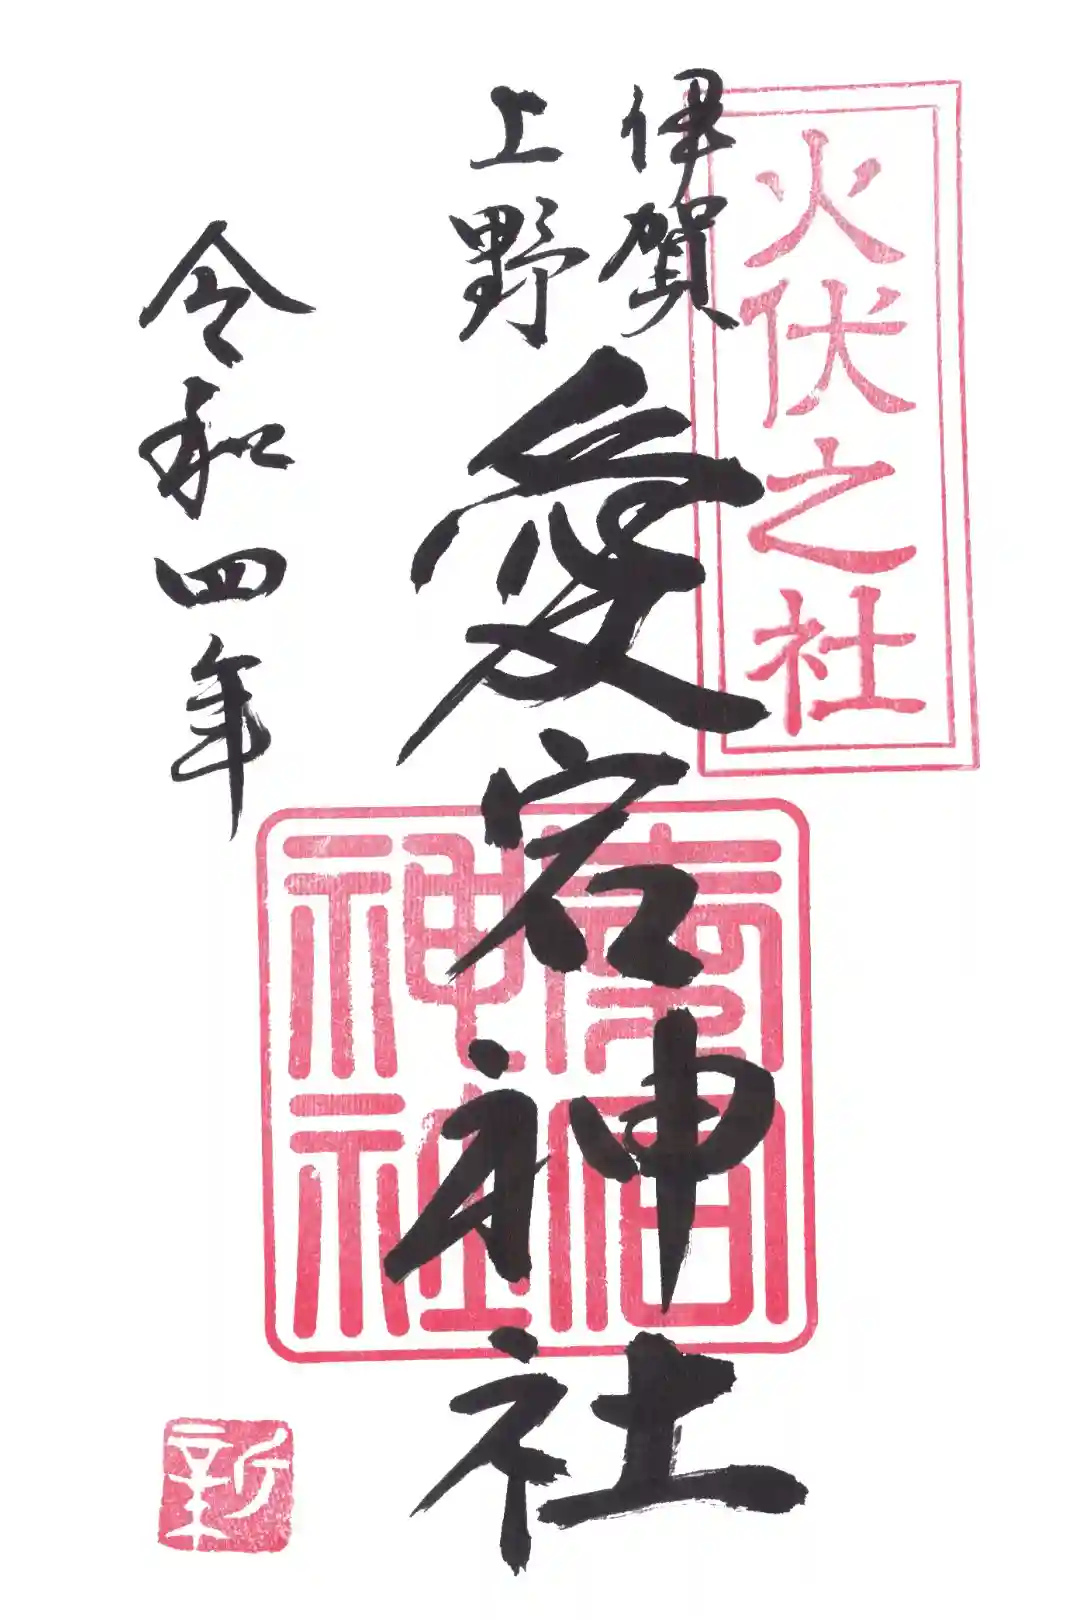 火伏之社
伊賀
上野
愛宕神社
愛宕神社
令和四年
新